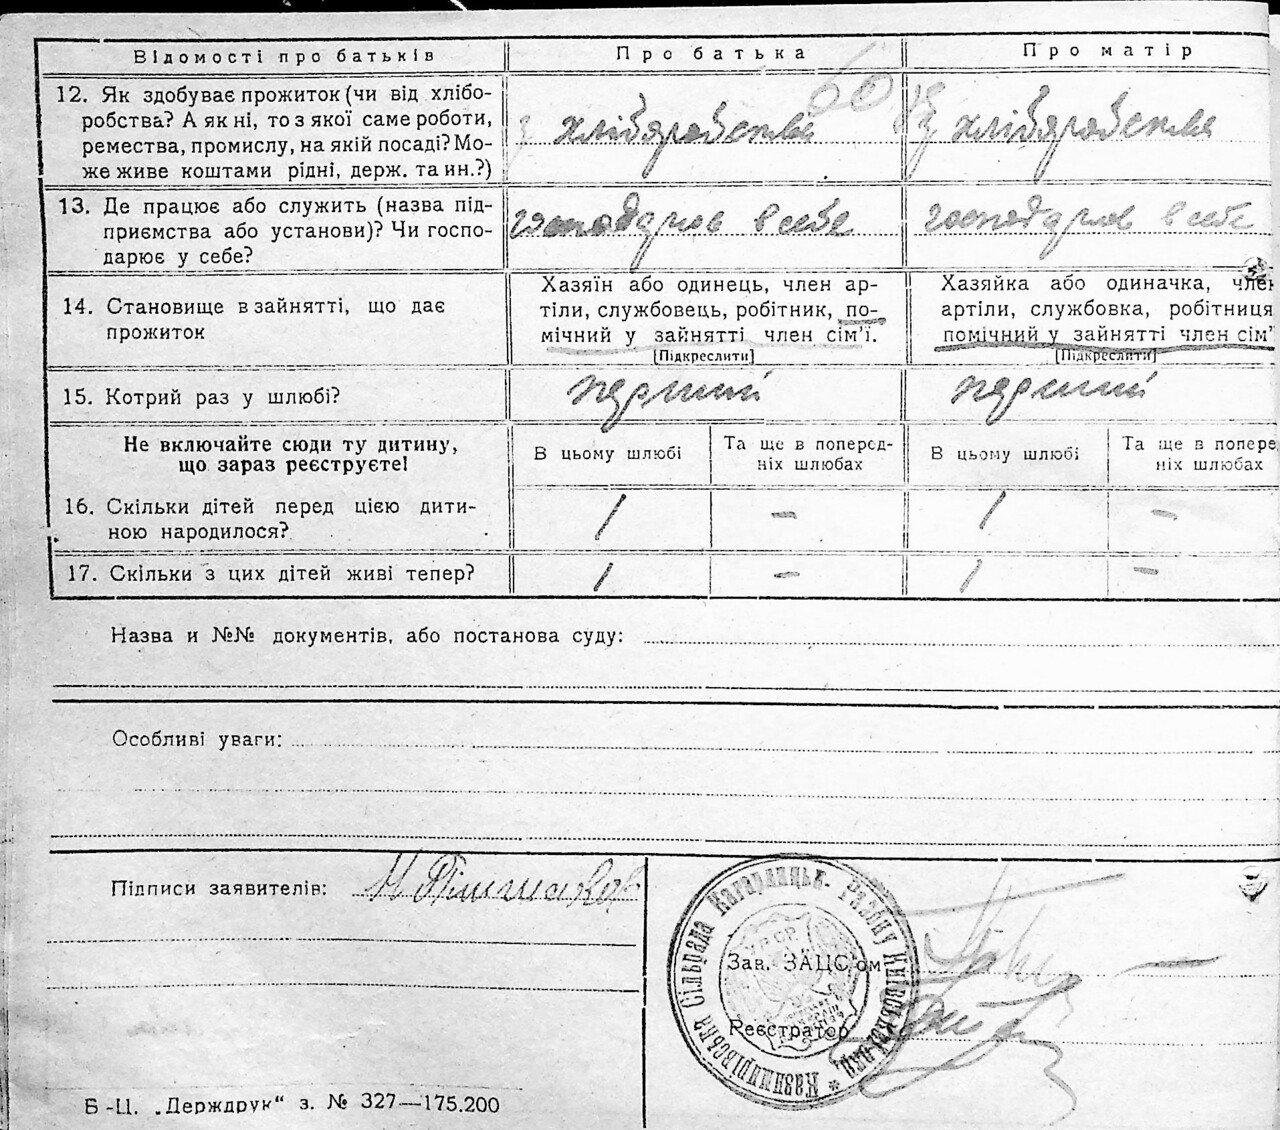 Відомості про батьків
Про батька
Про матір
12. Як здобуває прожиток (чи від хлібо-
робства? А як ні, то з якої саме роботи,
ремества, промислу, на якій посаді? Мо-
же живе коштами рідні, держ. та ин.?)
60
з хліборобства
з хліборобства
13. Де працює або служить (назва під-
приємства або установи)? Чи госпо-
дарює у себе?
господарює в себе
господарює в себе
14. Становище в зайнятті, що дає
прожиток
Хазяїн або одинець, член ар-
тіли, службовець, робітник, по-
мічний у зайнятті член сім'ї.
[Підкреслити]
Хазяйка або одиначка, член
артіли, службовка, робітниця
помічний у зайнятті член сім'
[Підкреслити]
15. Котрий раз у шлюбі?
перший
перший
Не включайте сюди ту дитину,
що зараз реєструєте!
В цьому шлюбі
Та ще в поперед-
ніх шлюбах
В цьому шлюбі
Та ще в попере
ніх шлюбах
16. Скільки дітей перед цією дити-
ною народилося?
1 – 1 –
17. Скільки з цих дітей живі тепер?
1 – 1 –
Назва и №№ документів, або постанова суду:
Особливі уваги:
Підписи заявителів:
Сільрада Кагарлицьк. Району
УСРР
Зав. ЗАЦС'ом
Реєстратор
Б-Ц. „Держдрук“ з. № 327—175.200